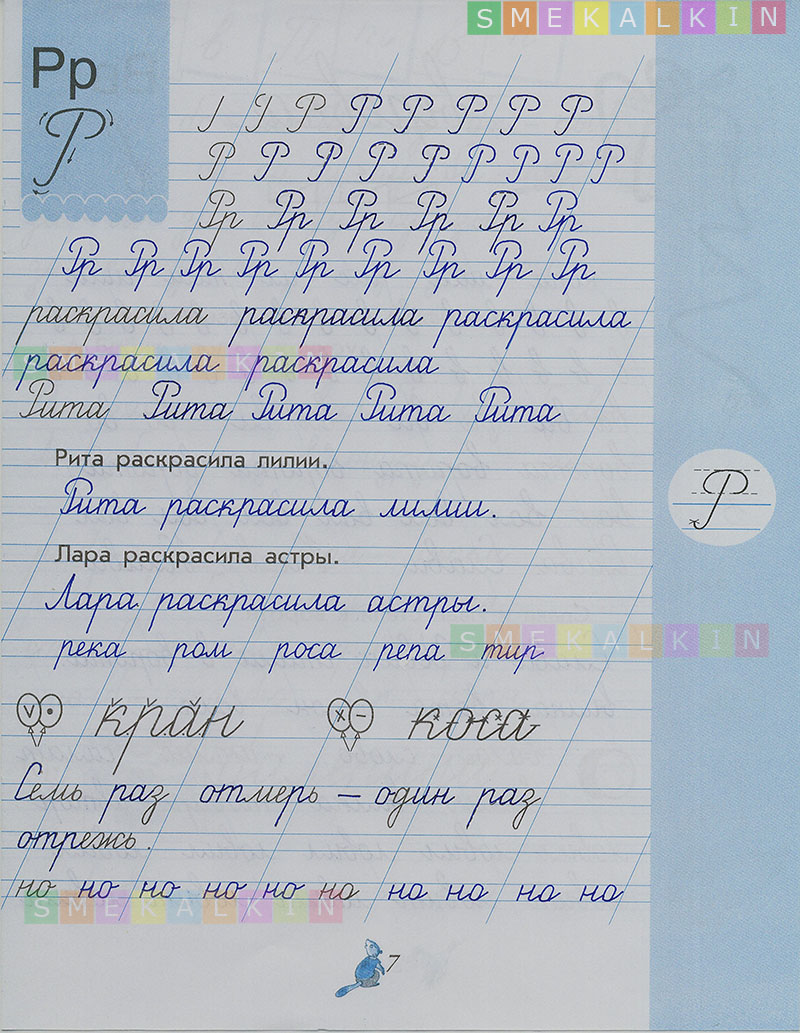 SMEKALKIN
Рр
Р
Р Р Р Р Р Р
Р Р Р Р Р Р Р Р
Рр Рр Рр Рр Рр Рр
Рр Рр Рр Рр Рр Рр Рр Рр Рр
раскрасила раскрасила раскрасила
раскрасила раскрасила
SMEKALKIN
Рита Рита Рита Рита Рита
Рита раскрасила лилии.
Р
Рита раскрасила лилии.
Лара раскрасила астры.
Лара раскрасила астры.
река ром роса репа тир
SMEKALKIN
кран коса
Семь раз отмерь — один раз
отрежь.
но но но но но но но но но но
SMEKALKIN
7